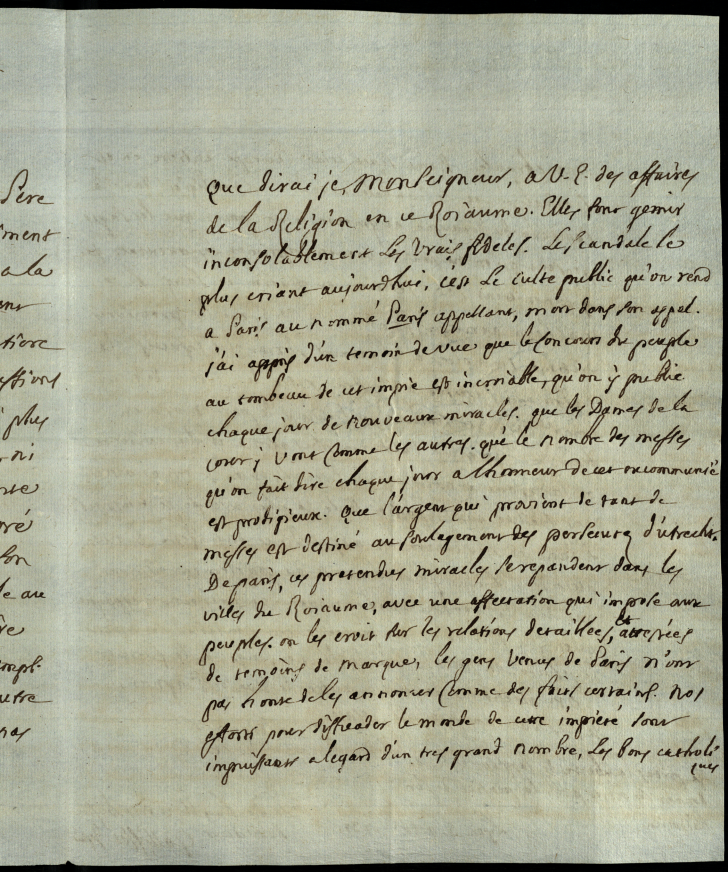 Père
iment
a la
ent
tiere
estions
plus
ni
rte
oré
son
le au
ire
empl.
utre
nas
Que dirai je, Monseigneur, a V. E. des affaires
de la Religion en ce Roiaume. Elles font gemir
inconsolablement les vrais fideles. Le scandale le
plus criant aujourdhui, c'est le culte public qu'on rend
a Paris au nommé Paris appellant, mort dans son appel.
j'ai appris d'un temoin de vue que le concours du peuple
au tombeau de cet impie est incroiable, qu'on y publie
chaque jour de nouveaux miracles. que les Dames de la
cour y vont comme les autres. que le nombre des messes
qu'on fait dire chaque jour a lhonneur de cet excommunié
est prodigieux. Que l'argent qui provient de tant de
messes est destiné au soulagement des persecutez d'utrecht.
De paris, ces pretendus miracles se repandent dans les
villes du Roiaume, avec une affectation qui impose aux
peuples. on les croit sur les relations detaillees, et attestées
de temoins de marque, les gens venus de Paris n'ont
pas honte de les annoncer comme des faits certains. Nos
efforts pour dissuader le monde de cette impieté sont
impuissants a legard d'un tres grand nombre, les bons catholi
ques